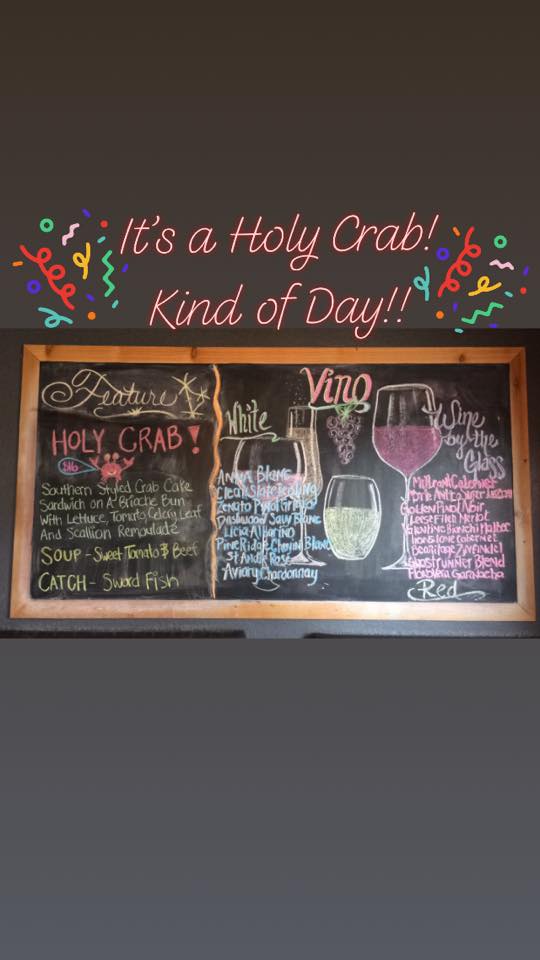 It's a Holy Crab!
Kind of Day!!
Feature
HOLY CRAB!
$16
Southern Styled Crab Cake
Sandwich on A Brioche Bun
With Lettuce, Tomato, Celery Leaf
And Scallion Remoulade
SOUP - Sweet Tomato & Beef
CATCH - Sword Fish
Vino
White
ANNA Blanc
Clean Slate Riesling
Zenato Pinot Grigio
Dashwood Sauv Blanc
Licia Albarino
Pine Ridge Chenin Blanc
Rose
Aviary Chardonnay
Wine
by the
Glass
Milbrandt Cabernet
Golden Pinot Noir
Merlot
Bianchi Malbec
Cabernet
Zinfandel
Ghost Runner Blend
Garnacha
Red